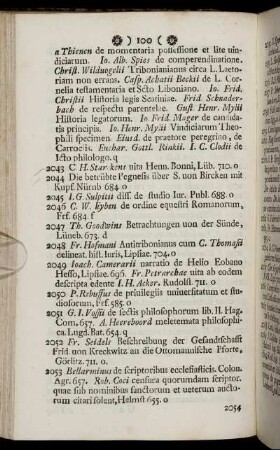 ( ❀ ) 100 ( ❀ )
a Thienen de momentaria possessione et lite uin-
diciarum. Io. Alb. Spies de comperendinatione.
Christ. Wildvogelii Tribonianianus circa L. Laeto-
riam non errans. Casp. Achatii Beckii de L. Cor-
nelia testamentaria et Scto Liboniano. Io. Frid.
Christii Historia legis Scatiniae. Frid. Schrader-
bach de respectu parentelae. Gust. Henr. Mylii
Historia legatorum. Io Frid. Mager de candida-
tis principis. Io. Henr. Mylii Vindiciarum Theo-
phili specimen Eiusd. de praetore peregrino, de
Carnotis. Euchar. Gottl. Rinkii. I. C. Clodii de
Icto philologo. 4
2043 C H. Starkens uita Henr. Bonni, Lüb. 710. 0
2044 Die betrübte Pegnesis über S. von Bircken mit
Kupf. Nürnb 684. 0
2045 I. G. Sulpitii diss. de studio Iur. Publ. 688. 0
2046 C. W. Eyben de ordine equestri Romanorum,
Frf. 684. f
2047 Th. Goodwins Betrachtungen von der Sünde,
Lüneb. 673. d
2048 Fr. Hofmani Antitribonianus cum C. Thomasii
delineat. hist. Iuris, Lipsiae. 704. 0
2049 Ioach. Camerarii narratio de Helio Eobano
Hesso, Lipsiae. 696. Fr. Petrarchae uita ab eodem
descripta edente I. H. Acker. Rudolst. 711. 0
2050 P. Rebuffus de priuilegiis uniuersitatum et stu-
diosorum, Frf. 585. 0
2051 G. I. Vossii de sectis philosophorum lib. II. Hag.
Com. 657. A. Hereboord meletemata philosophi-
ca. Lugd. Bat. 654. 4
2052 Fr. Seidels Beschreibung der Gesandschafft
Frid. von Kreckwitz an die Ottomannische Pforte,
Görlitz. 711. 0.
2053 Bellarminus de scriptoribus ecclesiasticis. Colon.
Agr. 657. Rob. Coci censura quorumdam scriptor.
quae sub nominibus sanctorum et ueterum aucto-
rum citari solent, Helmst 655. 0
2054